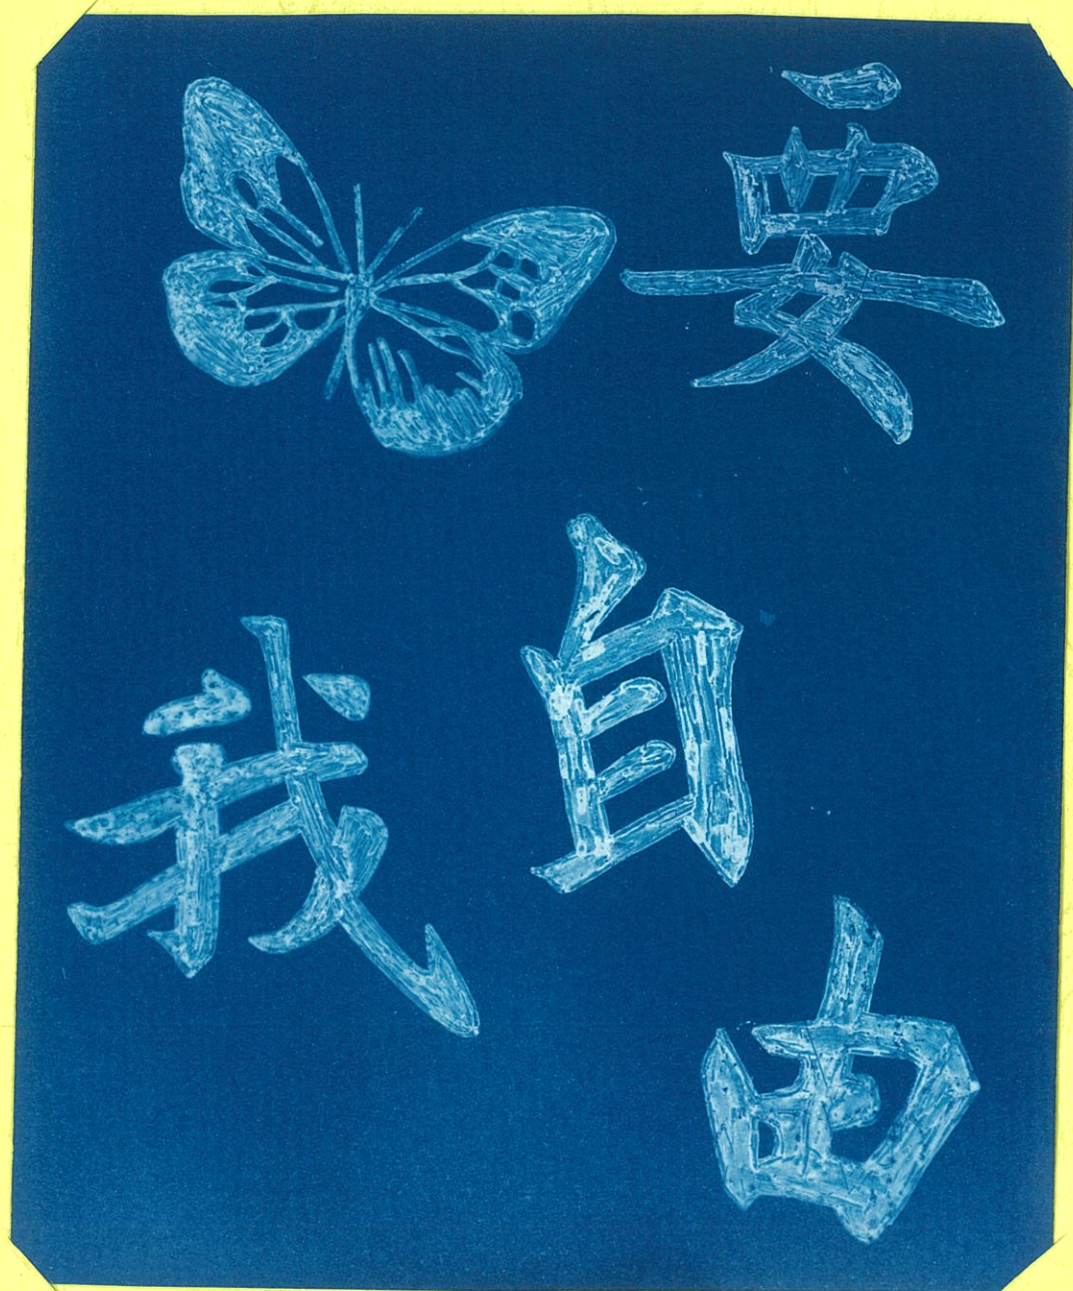 我要自由